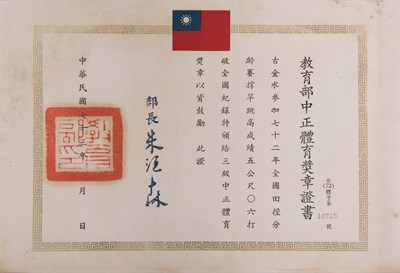 教育部中正體育獎章證書
台(73)體字第
10715
號
古金水參加七十二年全國田徑分
齡賽撐竿跳高成績五公尺〇六打
破全國紀錄特頒給三級中正體育
獎章以資鼓勵 此證
部長 朱匯森
中華民國七十三年 月 日